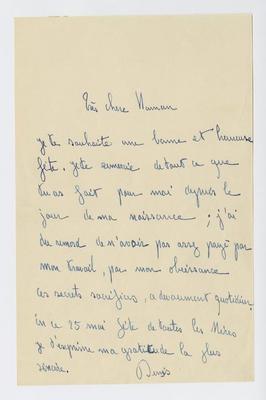 Très chère Maman
je te souhaite une bonne et heureuse
fête. Je te remercie de tout ce que
tu as fait pour moi depuis le
jour de ma naissance ; j'ai
du remord de n'avoir pas assez payé par
mon travail, par mon obéissance
ces secrets sacrifices, ce dévouement quotidien.
En ce 25 mai fête de toutes les Mères
je t'exprime ma gratitude la plus
sincère.
Denis